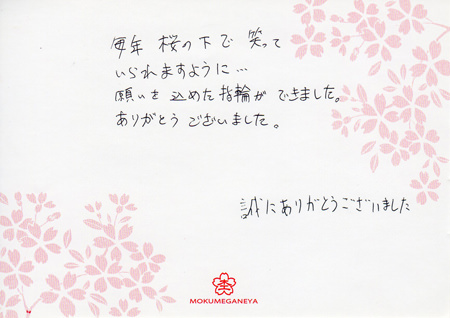 毎年 桜の下で 笑って
いられますように…
願いを 込めた 指輪が できました。
ありがとう ございました。
誠にありがとうございました
MOKUMEGANEYA